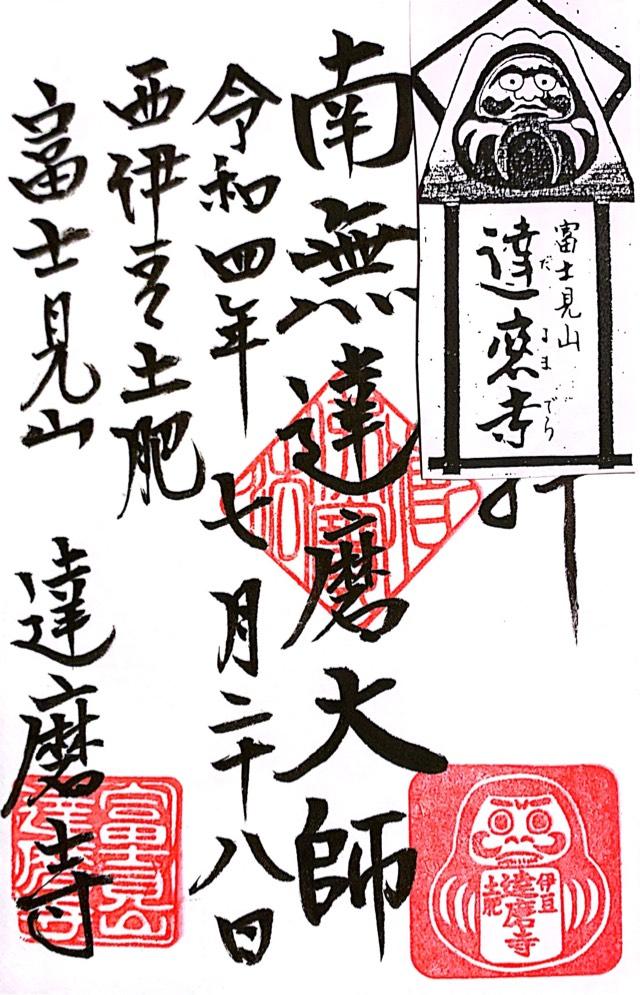 富士見山
達磨寺
だ
るま
でら
拝
南無達磨大師
令和四年七月二十八日
西伊豆土肥
富士見山 達磨寺
仏法僧寳
伊豆
達磨寺
土肥
富士見山
達磨寺